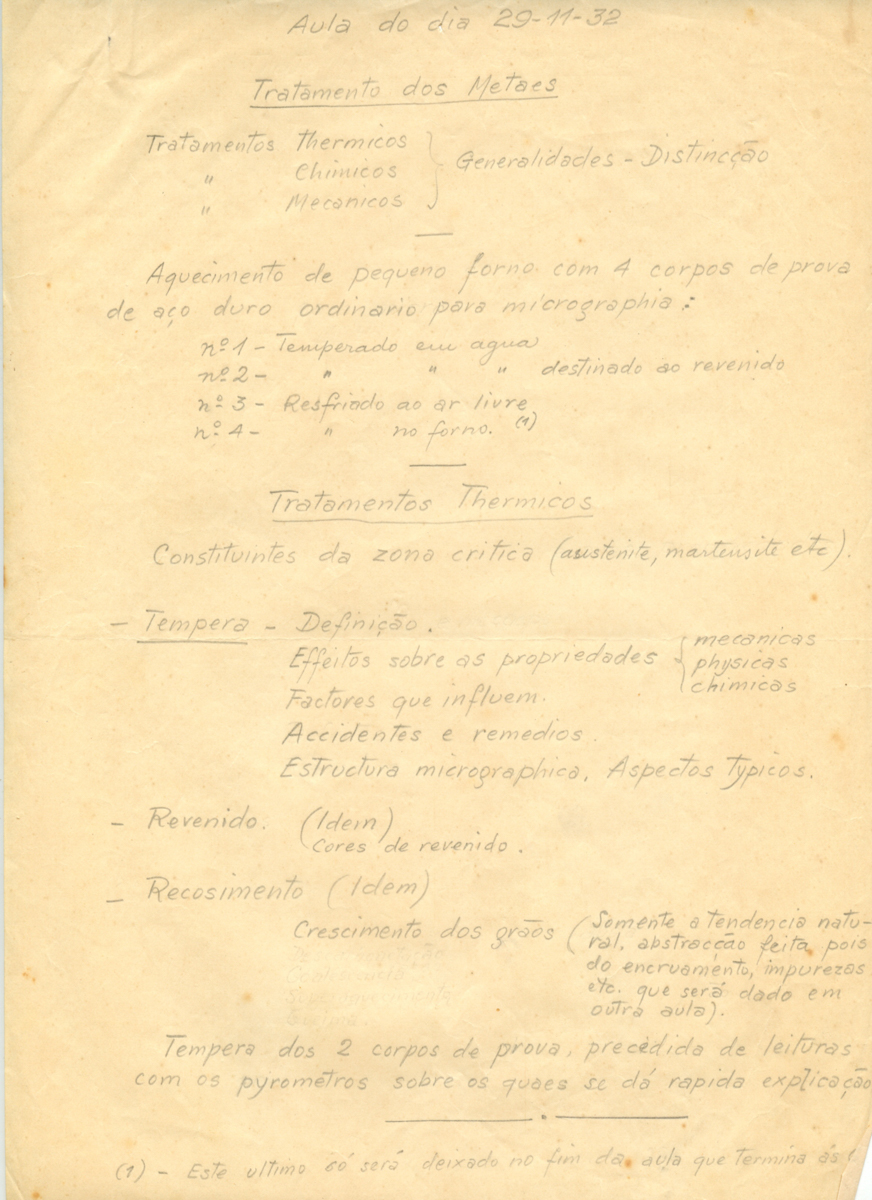 Aula do dia 29-11-32
Tratamento dos Metaes
Tratamentos Thermicos
" Chimicos } Generalidades - Distincção
" Mecanicos
Aquecimento de pequeno forno com 4 corpos de prova
de aço duro ordinario para micrographia:
nº 1 - Temperado em agua
nº 2 - " " " destinado ao revenido
nº 3 - Resfriado ao ar livre
nº 4 - " no forno. (1)
Tratamentos Thermicos
Constituintes da zona critica (austenite, martensite etc).
- Tempera - Definição.
Effeitos sobre as propriedades { mecanicas
physicas
chimicas
Factores que influem.
Accidentes e remedios.
Estructura micrographica. Aspectos typicos.
- Revenido. (Idem)
Cores de revenido.
- Recosimento (Idem)
Crescimento dos grãos (Somente a tendencia natu-
ral, abstracção feita pois
do encruamento, impurezas
etc. que será dado em
outra aula).
Tempera dos 2 corpos de prova, precedida de leituras
com os pyrometros sobre os quaes se dá rapida explicação
(1) - Este ultimo só será deixado no fim da aula que termina ás